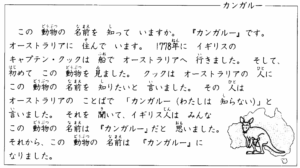 カンガルー
この 動物の 名前を 知って いますか。 『カンガルー』です。
オーストラリアに 住んで います。 1778年に イギリスの
キャプテン・クックは 船で オーストラリアへ 行きました。 そして、
初めて この 動物を 見ました。 クックは オーストラリアの 人に
この 動物の 名前を 知りたいと 言いました。 その 人は
オーストラリアの ことばで 「カンガルー（わたしは 知らない）」と
言いました。 それを 聞いて、イギリス人は みんな
この 動物の 名前は 『カンガルー』だと 思いました。
それから、この 動物の 名前は 『カンガルー』に
なりました。